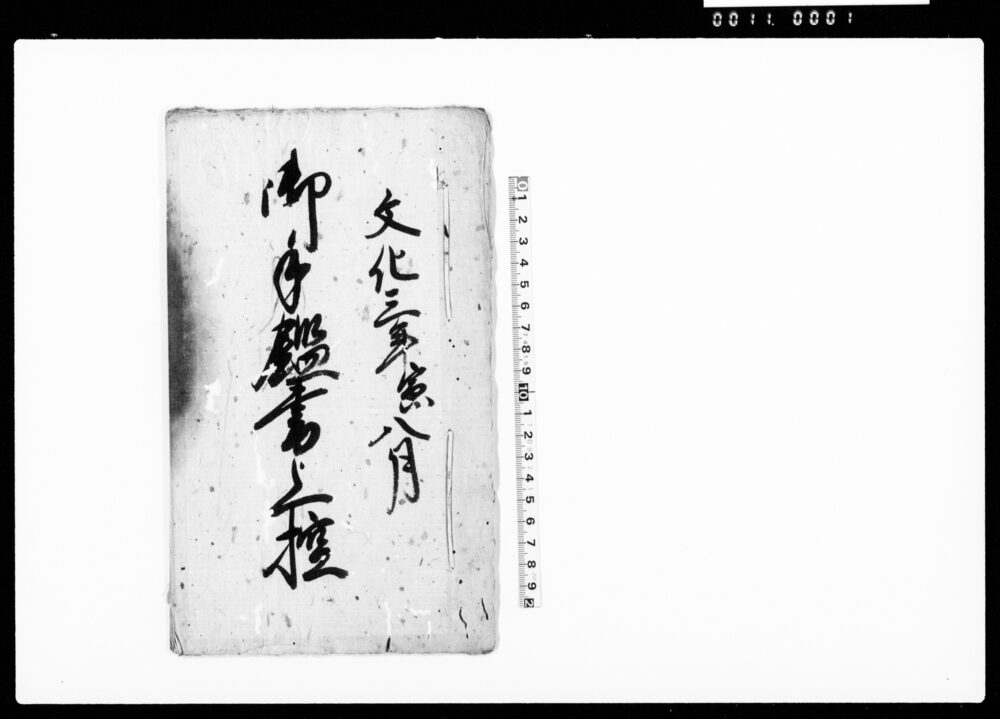 0011. 0001
文化三年寅八月
御手鑑書上控
0 1 2 3 4 5 6 7 8 9 10 1 2 3 4 5 6 7 8 9 2